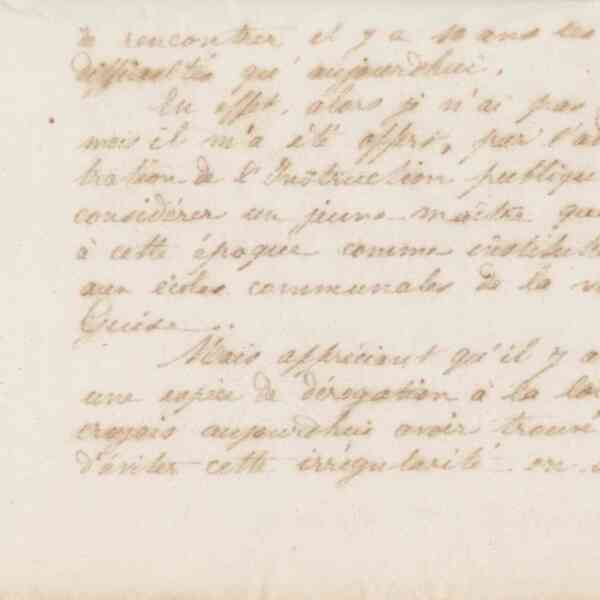 à rencontrer il y a 10 ans les
difficultés qu'aujourd'hui.
En effet, alors je n'ai pas
mois il m'a été offert, par l'ad
tration de l'Instruction publique
considérer un jeune maître que
à cette époque comme institut
aux écoles communales de la v
Guise..
Mais appréciant qu'il y a
une espèce de dérogation à la loi
croyais aujourd'hui avoir trouvé
d'éviter cette irrégularité en